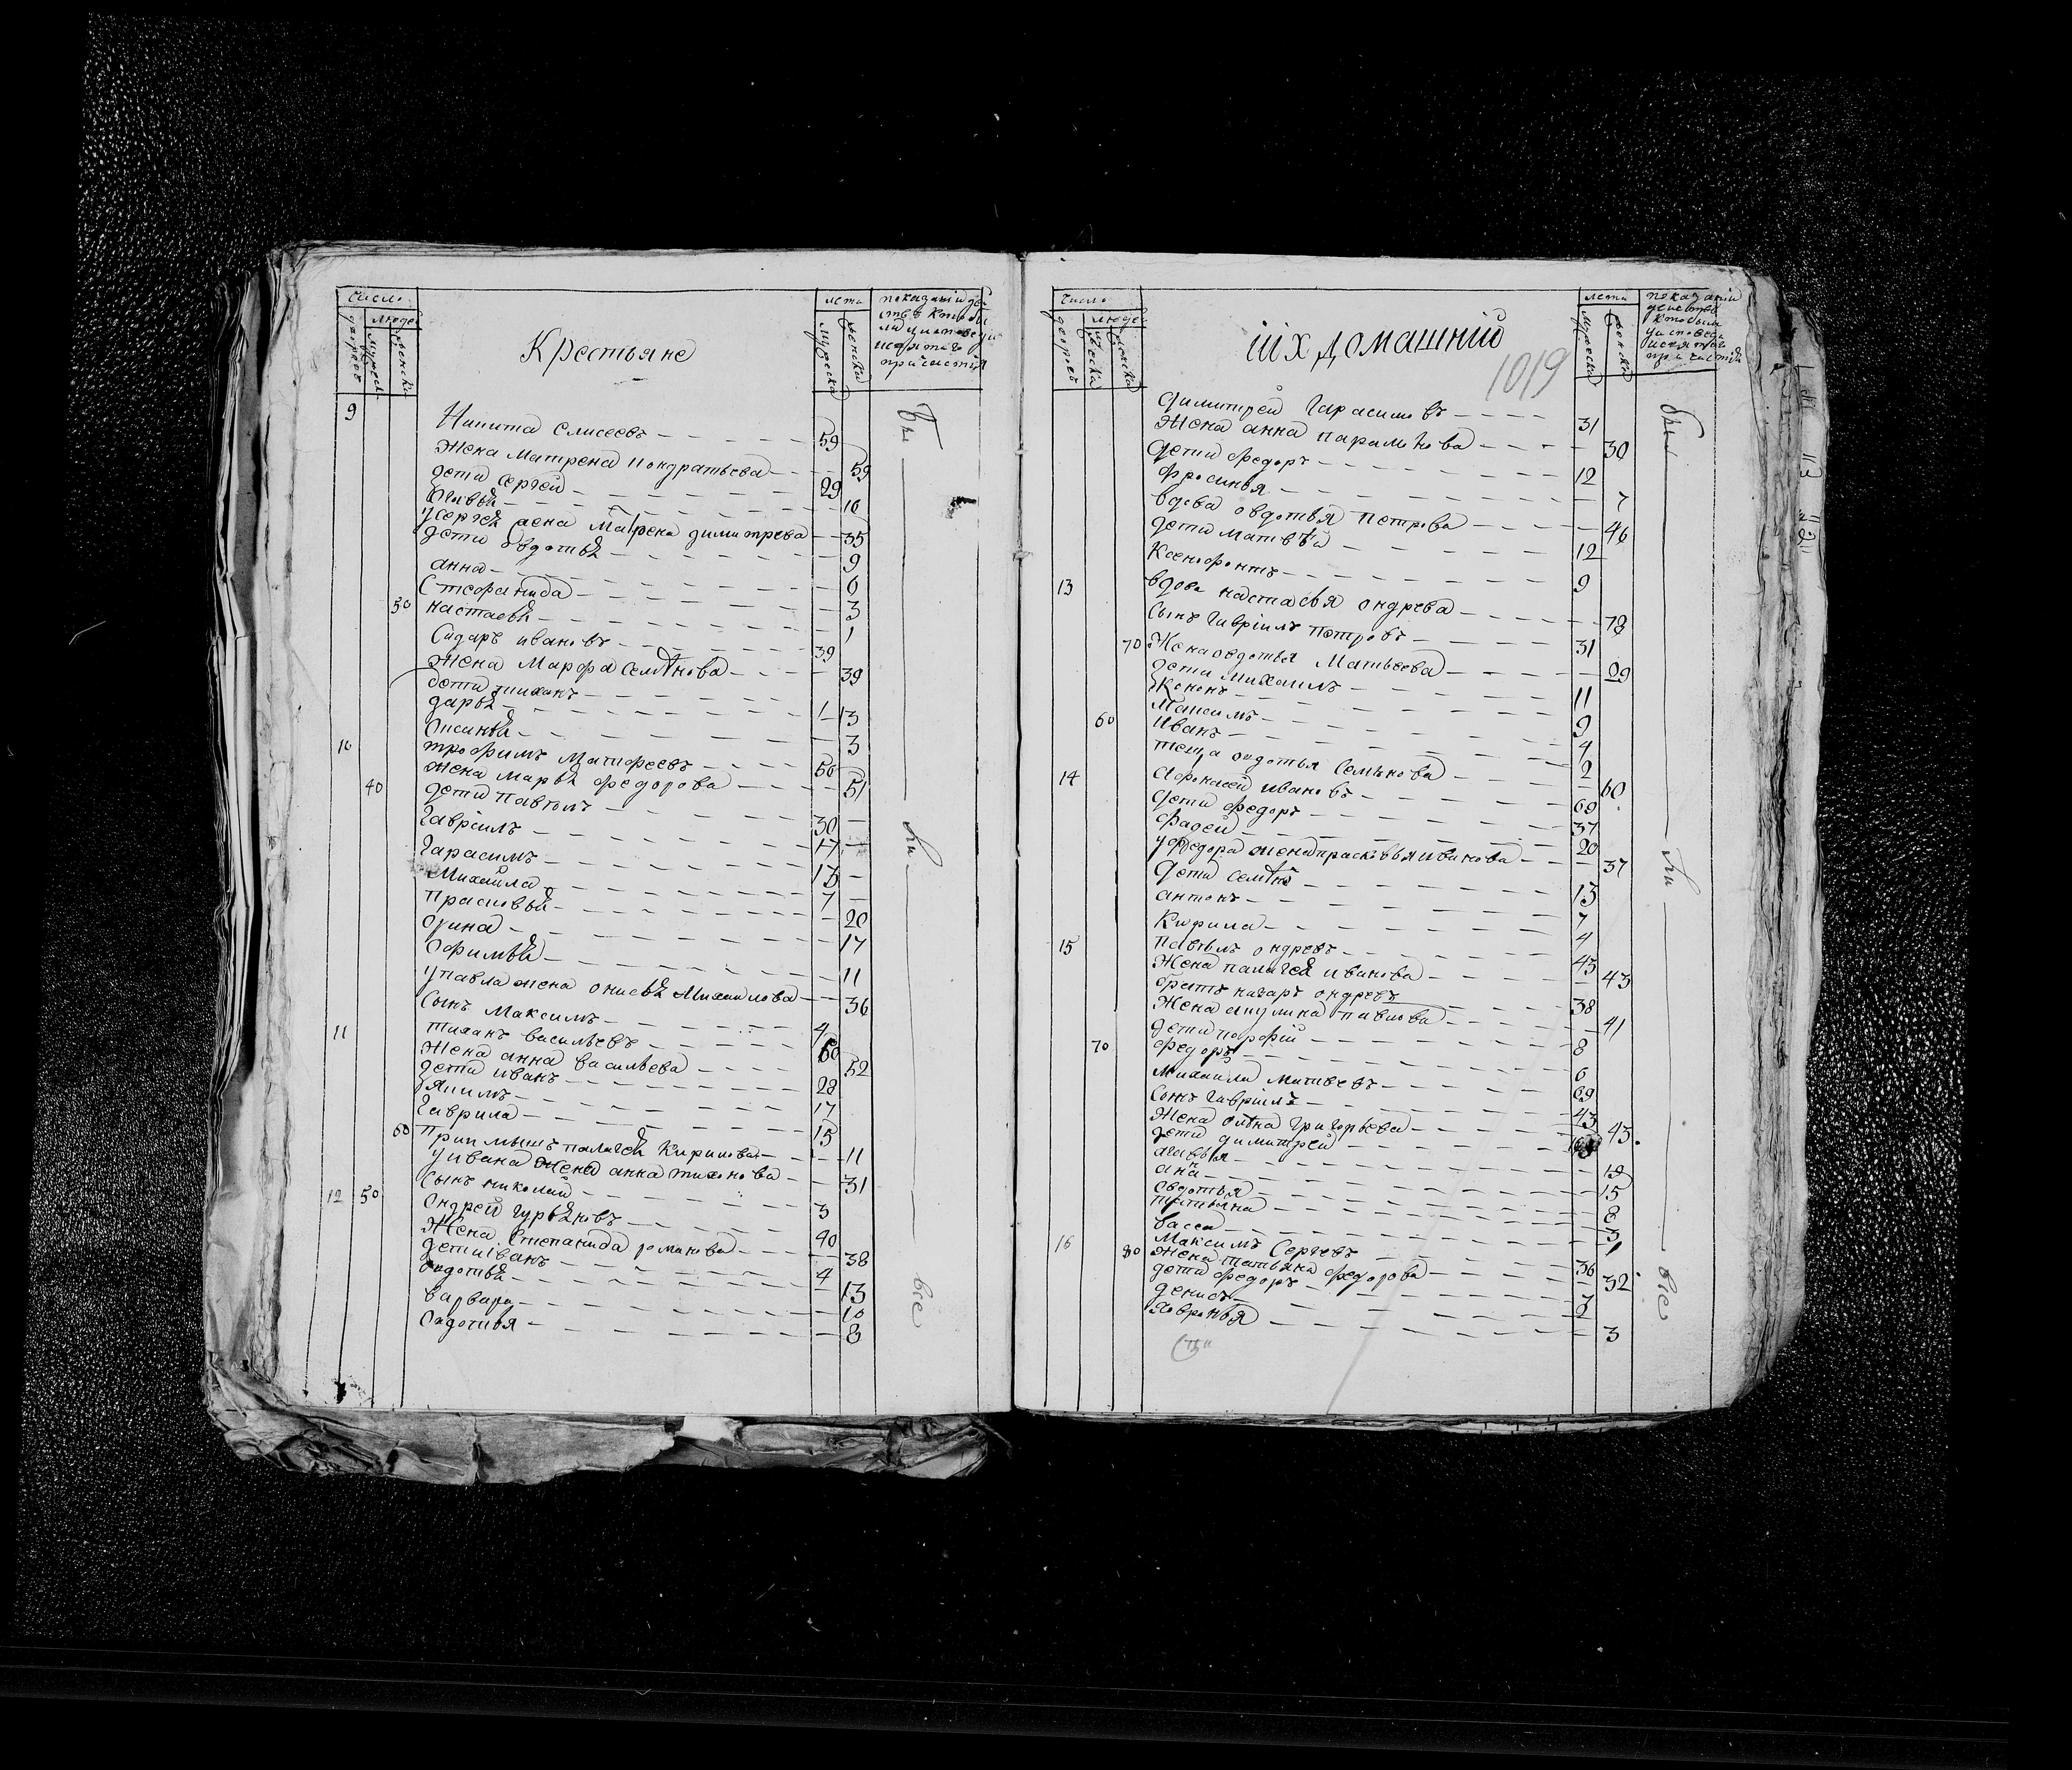 число
людей
дворовъ
мужеска
женска
Крестьяне
лета
мужеска
женска
показаніи
исвятагъ
причастія
9
Никита Елисеевъ 59
Жена Матрена Кондратьева 59
дети Сергей 29
16
у Сергеѧ жена Матрена димитрева 35
дети Овдотьѧ 9
анна 6
Стефанида 3
30 настасьѧ 1
Сидаръ ивановъ 39
Жена Марфа Семѣнова 39
дети тиханъ 1
дарьѧ 13
Оксиньѧ 3
10 трофимъ Матфеевъ 50
жена Марьѧ федорова 51
40 дети Павѣлъ 30
Гаврiилъ 17
Гарасимъ 13
Михайла 7
Прасковьѧ 20
Орина 17
Офимьѧ 11
упавла жена онисьѧ Михаилова 36
Сынъ Максимъ 4
11 тиханъ васильевъ 60
Жена анна васильева 52
дети иванъ 28
Якимъ 17
Гаврила 15
60 Приимышъ палагеѧ Кирилова 11
у ивана жена анна тихонова 31
Сынъ николай 3
12 50 Ондрей Гурьѧновъ 40
Жена Степанида романова 38
дети иванъ 4
Овдотьѧ 13
варвара 10
Овдотья 8
число
людей
дворовъ
мужеска
женска
ιιιх домашнiй
1019
лета
мужеска
женска
показанiи
действъ
исвятагъ
причастiя
Димитрей Гарасимовъ 31
Жена анна парамонова 30
Дети федоръ 12
фросинья 7
вдова овдотья Петрова 46
дети матвѣй 12
Ксенофонтъ 9
13 вдова настасья ондрева 78
Сынъ Гаврiилъ Петровъ 31
70 Жена овдотья Матвеева 29
дети Михаилъ 11
Кононъ 9
Максимъ 4
60 Иванъ 2
теща овдотья Семѣнова 60
14 Афонасей ивановъ 60
дети федоръ 37
фадей 20
уфедора жена прасковья иванова 37
Дети Семѣнъ 13
антонъ 7
Кирила 4
15 Павѣлъ ондревъ 43
Жена палагея иванова 43
братъ назаръ ондревъ 38
Жена акулина павлова 41
дети порфiй 8
70 федоръ 6
Михаила Матвеевъ 69
Сынъ Гаврiилъ 43
Жена Олѣна Григорьева 43
дети димитрей
19
анна 15
Овдотья 8
татьяна 3
васса 1
16 Максимъ Сергевъ 36
80 Жена татьяна федорова 32
дети федоръ 7
денисъ 2
Ховронья 3
были
все